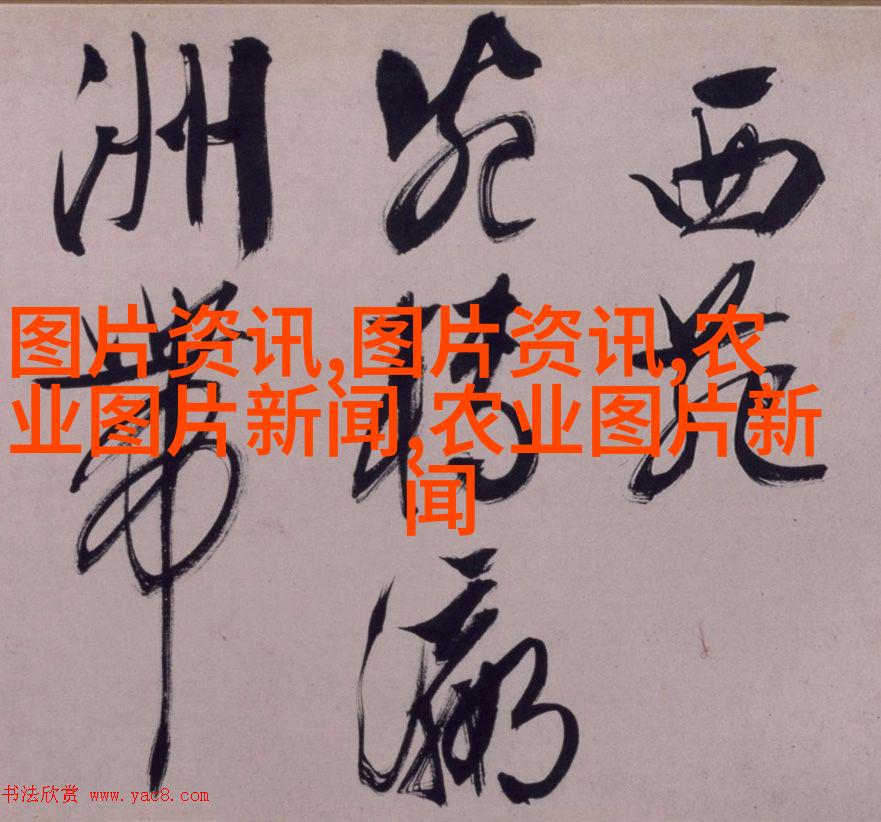 西苑
瀛
洲帶
图片资讯,图片资讯,农
业图片新闻,农业图片新
闻
书法欣赏 www.yac8.com